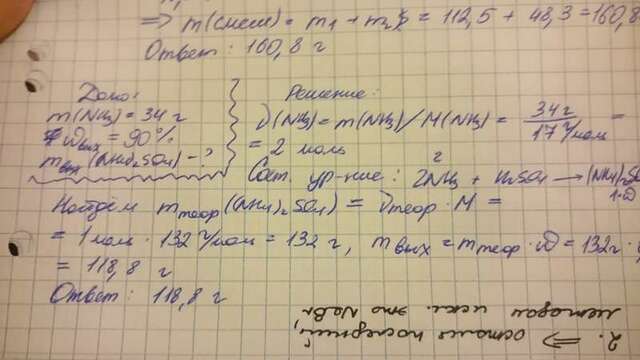 ⟹ m(смеси) = m₁ + m₂ = 112,5 + 48,3 = 160,8
Ответ: 160,8 г
Дано:
m(NH₃) = 34 г
ωвых = 90%
mвых (NH₄)₂SO₄) - ?
Решение:
ν(NH₃) = m(NH₃)/M(NH₃) = 34 г / 17 г/моль =
= 2 моль
Сост. ур-ние: 2NH₃ + H₂SO₄ → (NH₄)₂SO
2
1
Найдем mтеор((NH₄)₂SO₄) = νтеор · M =
= 1 моль · 132 г/моль = 132 г, mвых = mтеор · ω = 132г ·
= 118,8 г
Ответ: 118,8 г
2. ⟹ остался последний,
методом искл. это NaBr